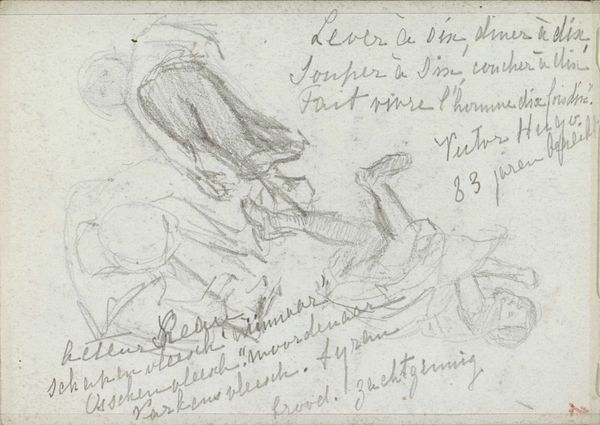 Lever à six, diner à dix
Souper à Six, coucher à dix
Fait vivre l'homme dix fois dix.
Victor Hugo.
83 jaren
Acteur
Schapenvleesch "minnaar"
Osschenvleesch "moordenaar
Varkensvleesch. tyran
brood. zachtzinnig